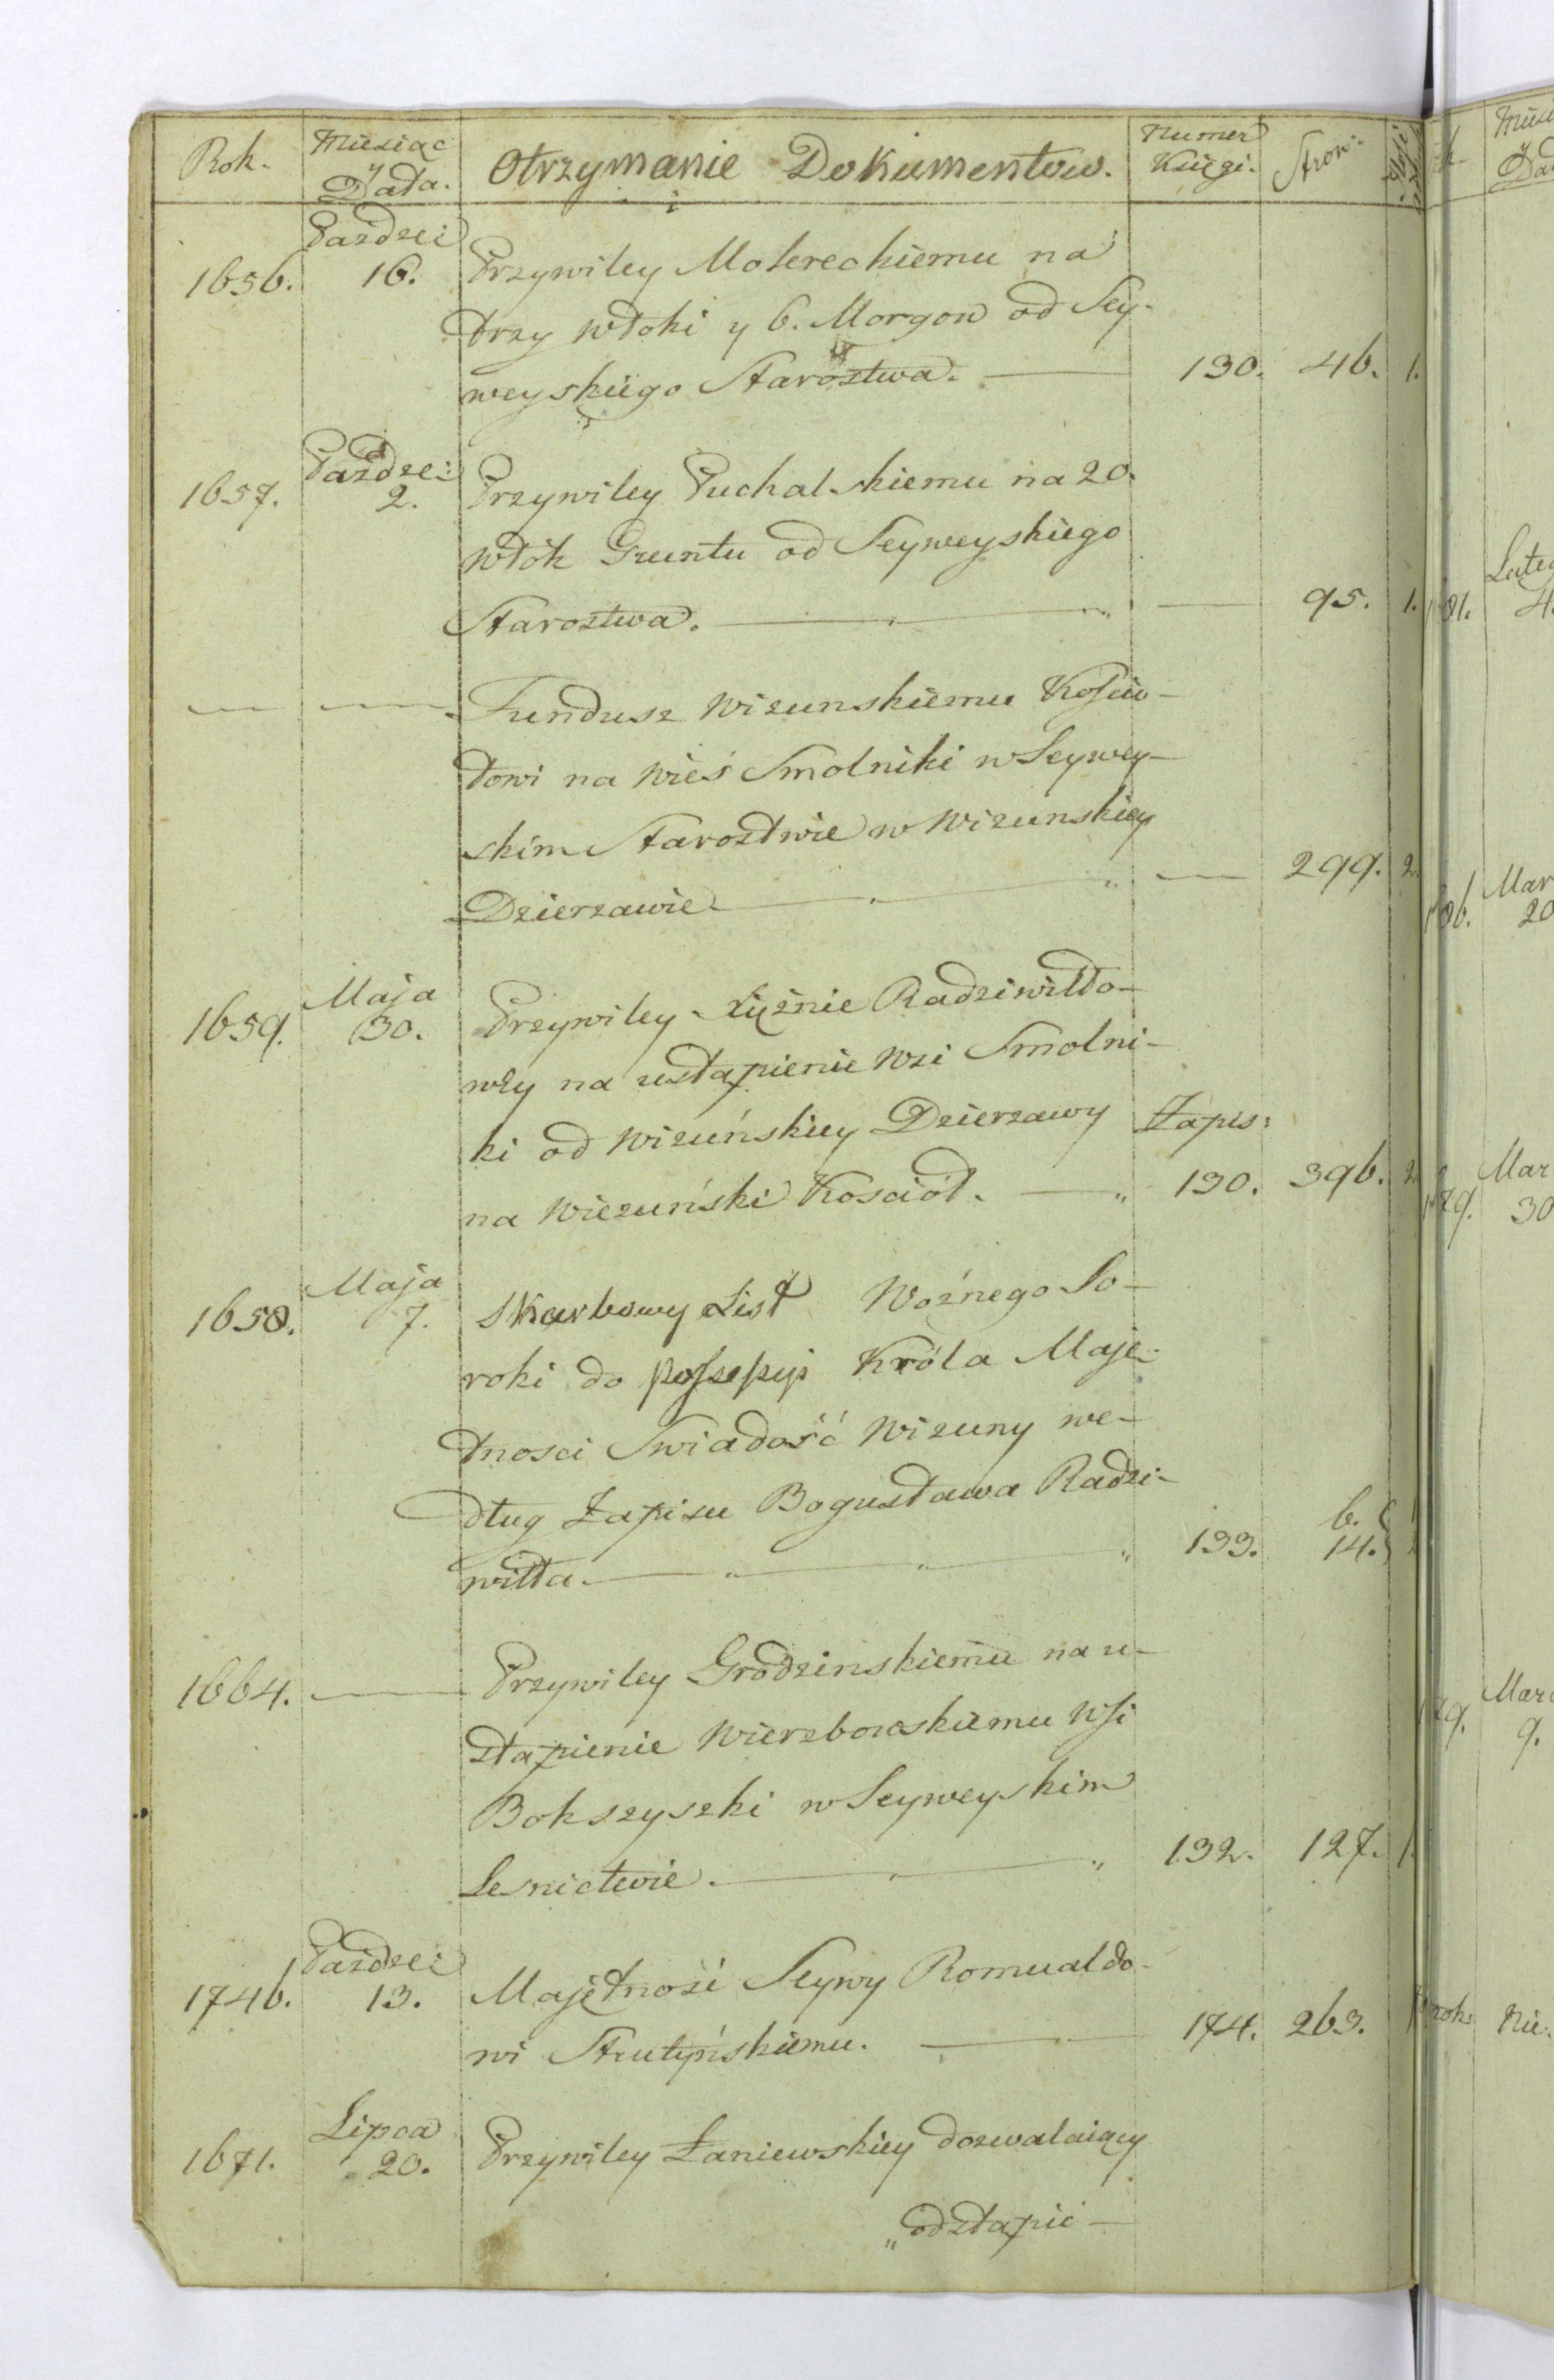 Rok. Miesiąc y Data. Otrzymanie Dokumentow. Numer Księgi. Stron:
Pazdzei
1656. 16. Przywiley Moterechiemu na
trzy włoki y 6. Morgow od Sey-
weyskiego Starostwa. — 130. 46. 1.
Pażdze:
1657. 2. Przywiley Puchalskiemu na 20.
włók Gruntu od Seyweyskiego
Starostwa. — „ — 95. 1.
— — Fundusz Wizunskiemu Kościo-
łowi na wieś Smolniki w Seywey-
skim Starostwie w Wizunskiey
Dzierzawie — „ — 299. 2.
Maja
1659. 30. Przywiley Xiężnie Radziwiłło-
wey na ustąpienie Wsi Smolni-
ki od Wizuńskiey Dzierzawy Zapis:
na Wiezuński Kosciół. — „ 130. 396. 2
Maja
1658. 7. Skarbowy List Woźnego So-
roki do possessyi Króla Maję-
tnosci Swiadość Wizuny we-
dług Zapisu Bogusława Radzi- 6.
wiłła. — „ — „ 133. 14.
1664. — Przywiley Grodzinskiemu na u-
stąpienie Wierzbowskiemu Wsi
Bokszyszki w Seyweyskim
Lesnictwie. — „ 132. 127. 1.
Pazdze:
1746. 13. Majętność Seywy Romualdo-
wi Strutyńskiemu. — 174. 263.
Lipca
1671. 20. Przywiley Łaniewskiey dozwalaiący
„odstąpić —
Data
Luteg
81. 4.
Mar
86. 20
Mar
30
Mar
9.
rok. Nie.